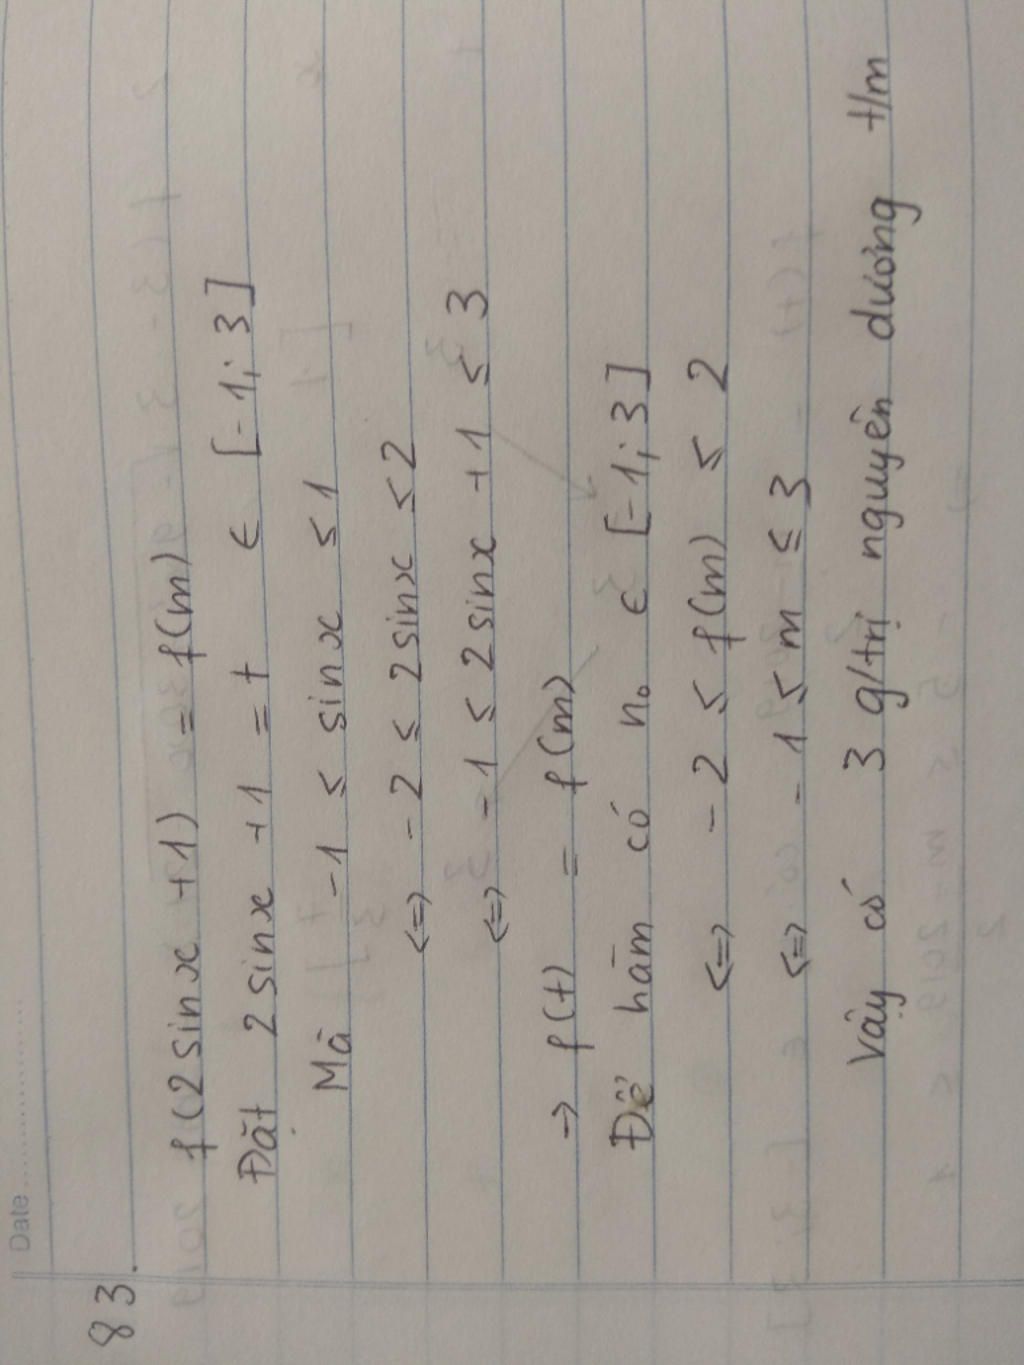 Date
83.
f(2sinx +1) = f(m)
Đặt 2sinx +1 = t ∈ [-1; 3]
Mà -1 ≤ sinx ≤ 1
<=> -2 ≤ 2sinx ≤ 2
<=> -1 ≤ 2sinx +1 ≤ 3
→ f(t) = f(m)
Để hàm có n₀ ∈ [-1; 3]
<=> -2 ≤ f(m) ≤ 2
<=> -1 ≤ m ≤ 3
Vậy có 3 g/trị nguyên dương t/m